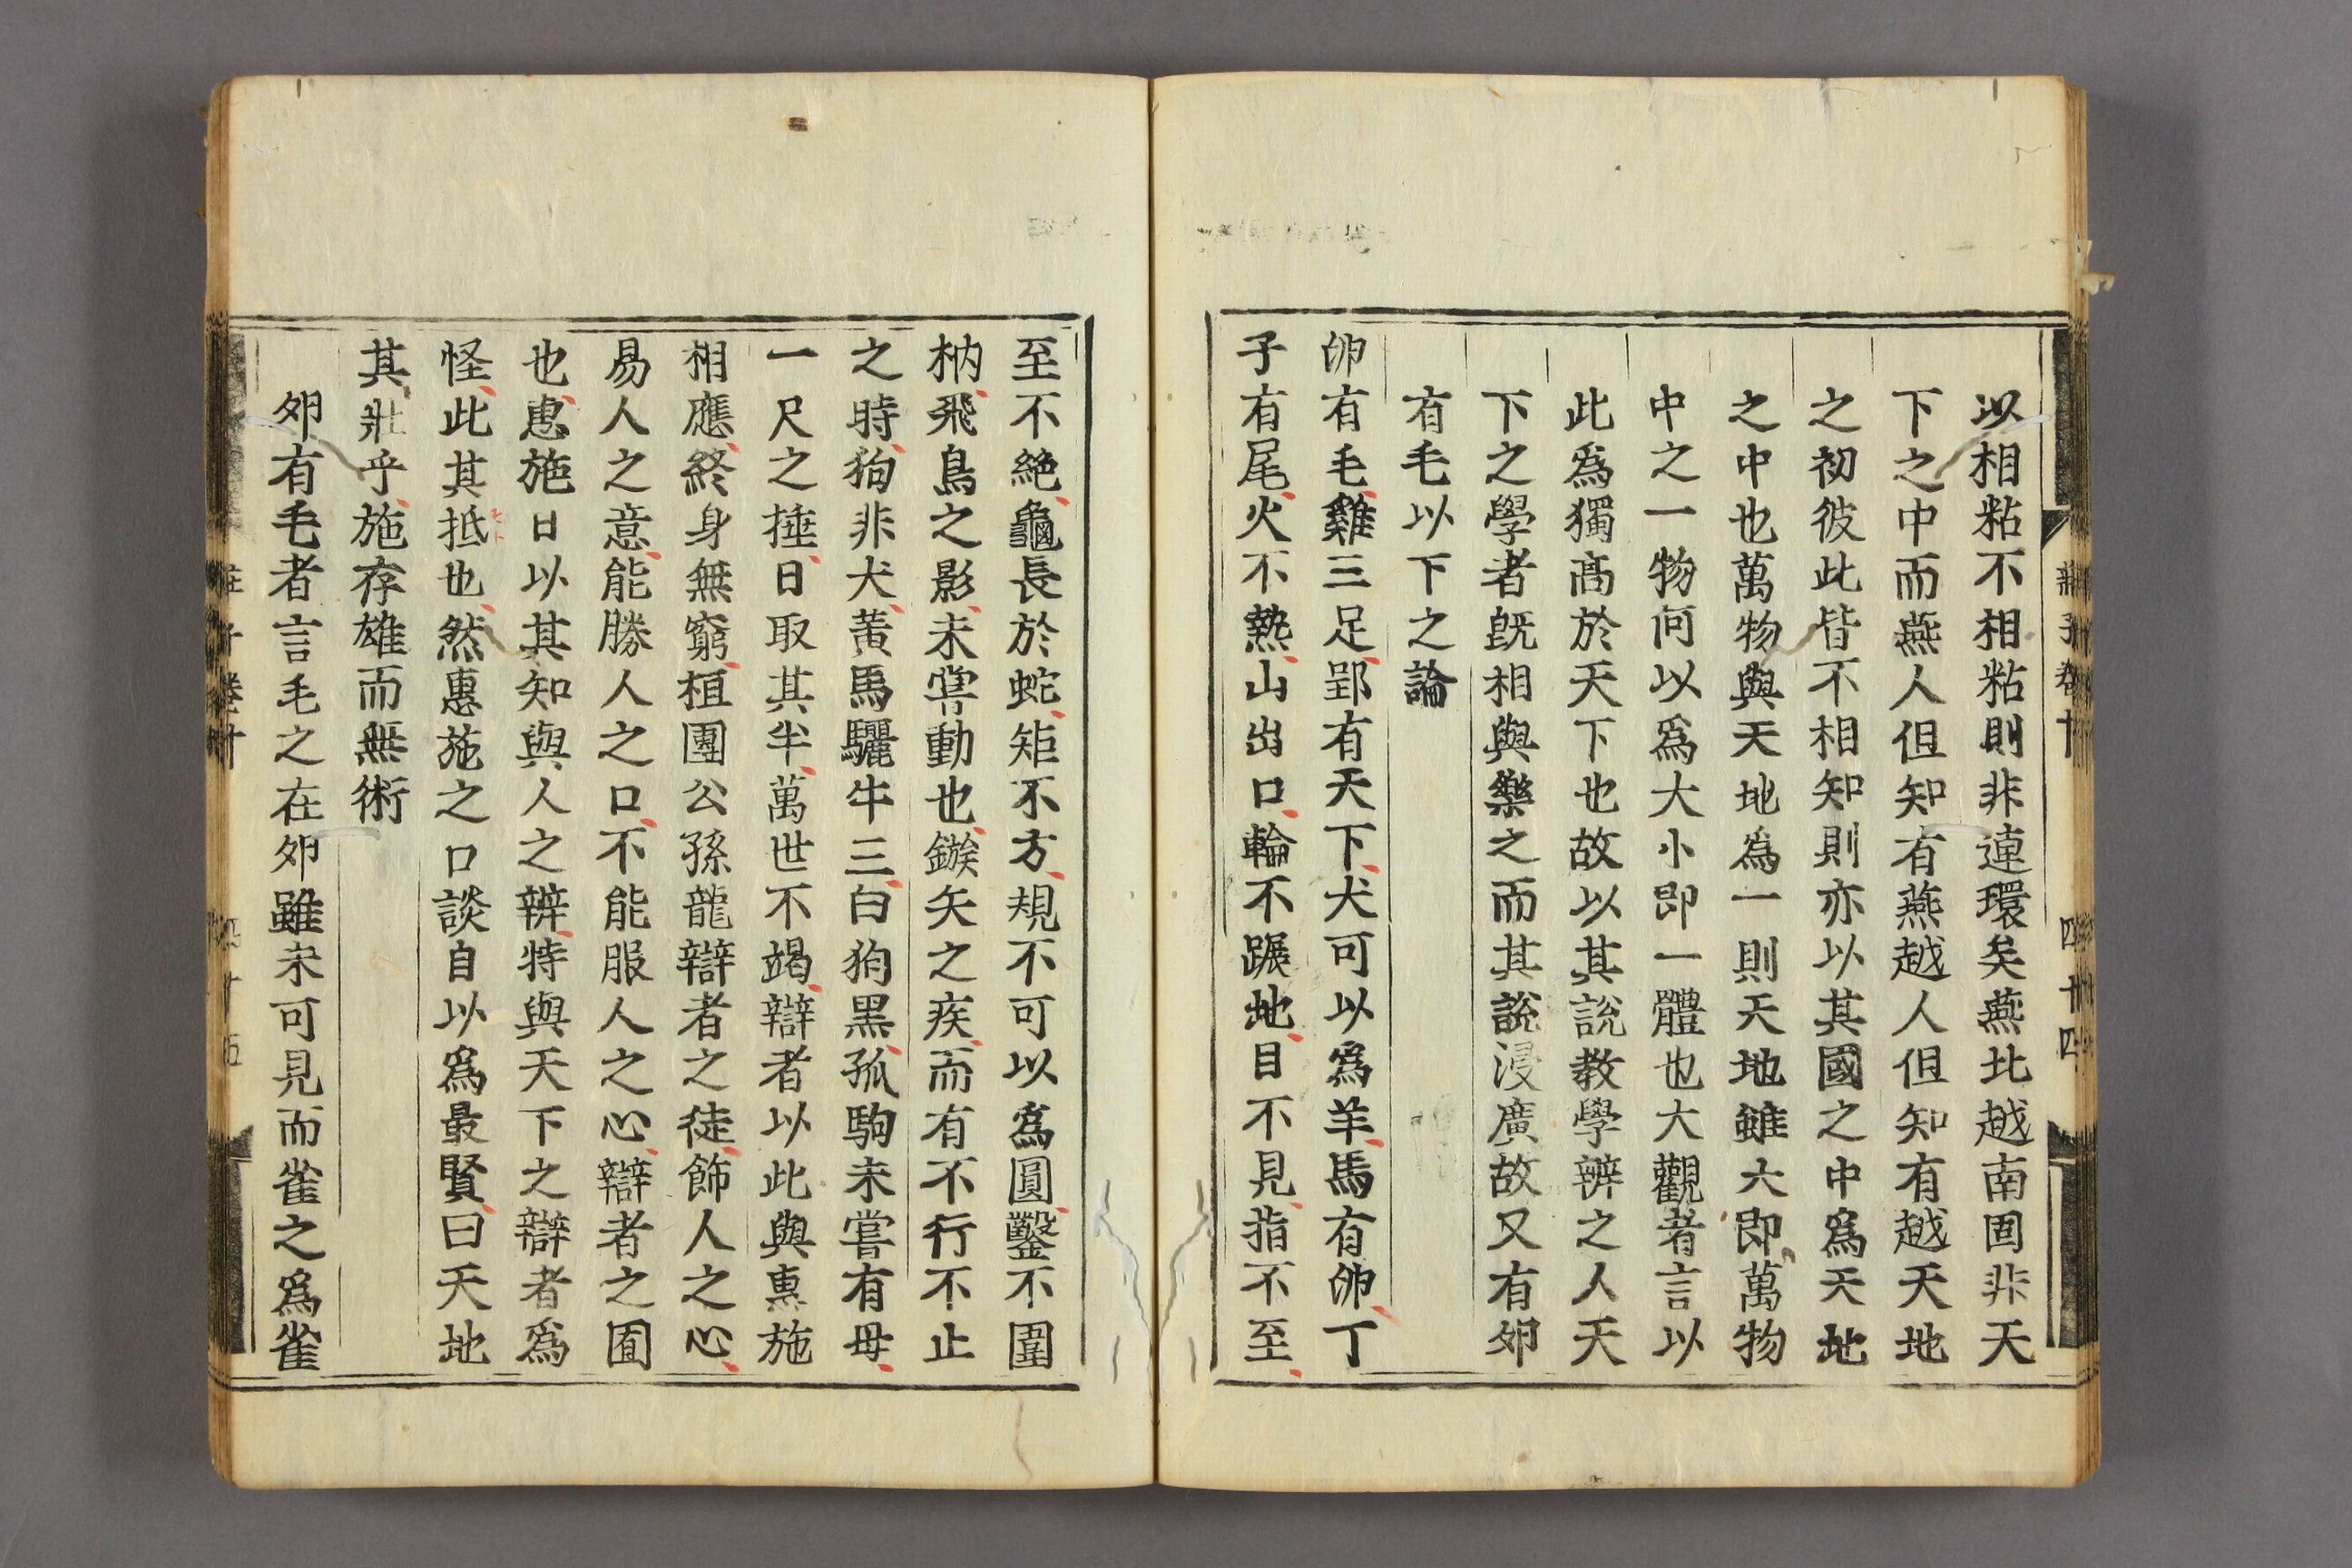 莊子卷十 四十四
以相粘不相粘則非連環矣燕北越南固非天
下之中而燕人但知有燕越人但知有越天地
之初彼此皆不相知則亦以其國之中爲天地
之中也萬物與天地爲一則天地雖大即萬物
中之一物何以爲大小即一體也大觀者言以
此爲獨高於天下也故以其說教學辨之人天
下之學者旣相與樂之而其說浸廣故又有夘
有毛以下之論
卵有毛雞三足郢有天下犬可以爲羊馬有卵丁
子有尾火不熱山出口輪不蹍地目不見指不至
至不絕龜長於蛇矩不方規不可以爲圓鑿不圍
枘飛鳥之影未甞動也鏃矢之疾而有不行不止
之時狗非犬黃馬驪牛三白狗黑孤駒未嘗有母
一尺之捶日取其半萬世不竭辯者以此與惠施
相應終身無窮桓團公孫龍辯者之徒飾人之心
易人之意能勝人之口不能服人之心辯者之囿
也惠施日以其知與人之辨特與天下之辯者爲
怪此其抵也然惠施之口談自以爲最賢曰天地
其壯乎施存雄而無術
夘有毛者言毛之在夘雖未可見而雀之爲雀
莊子卷十 四十五